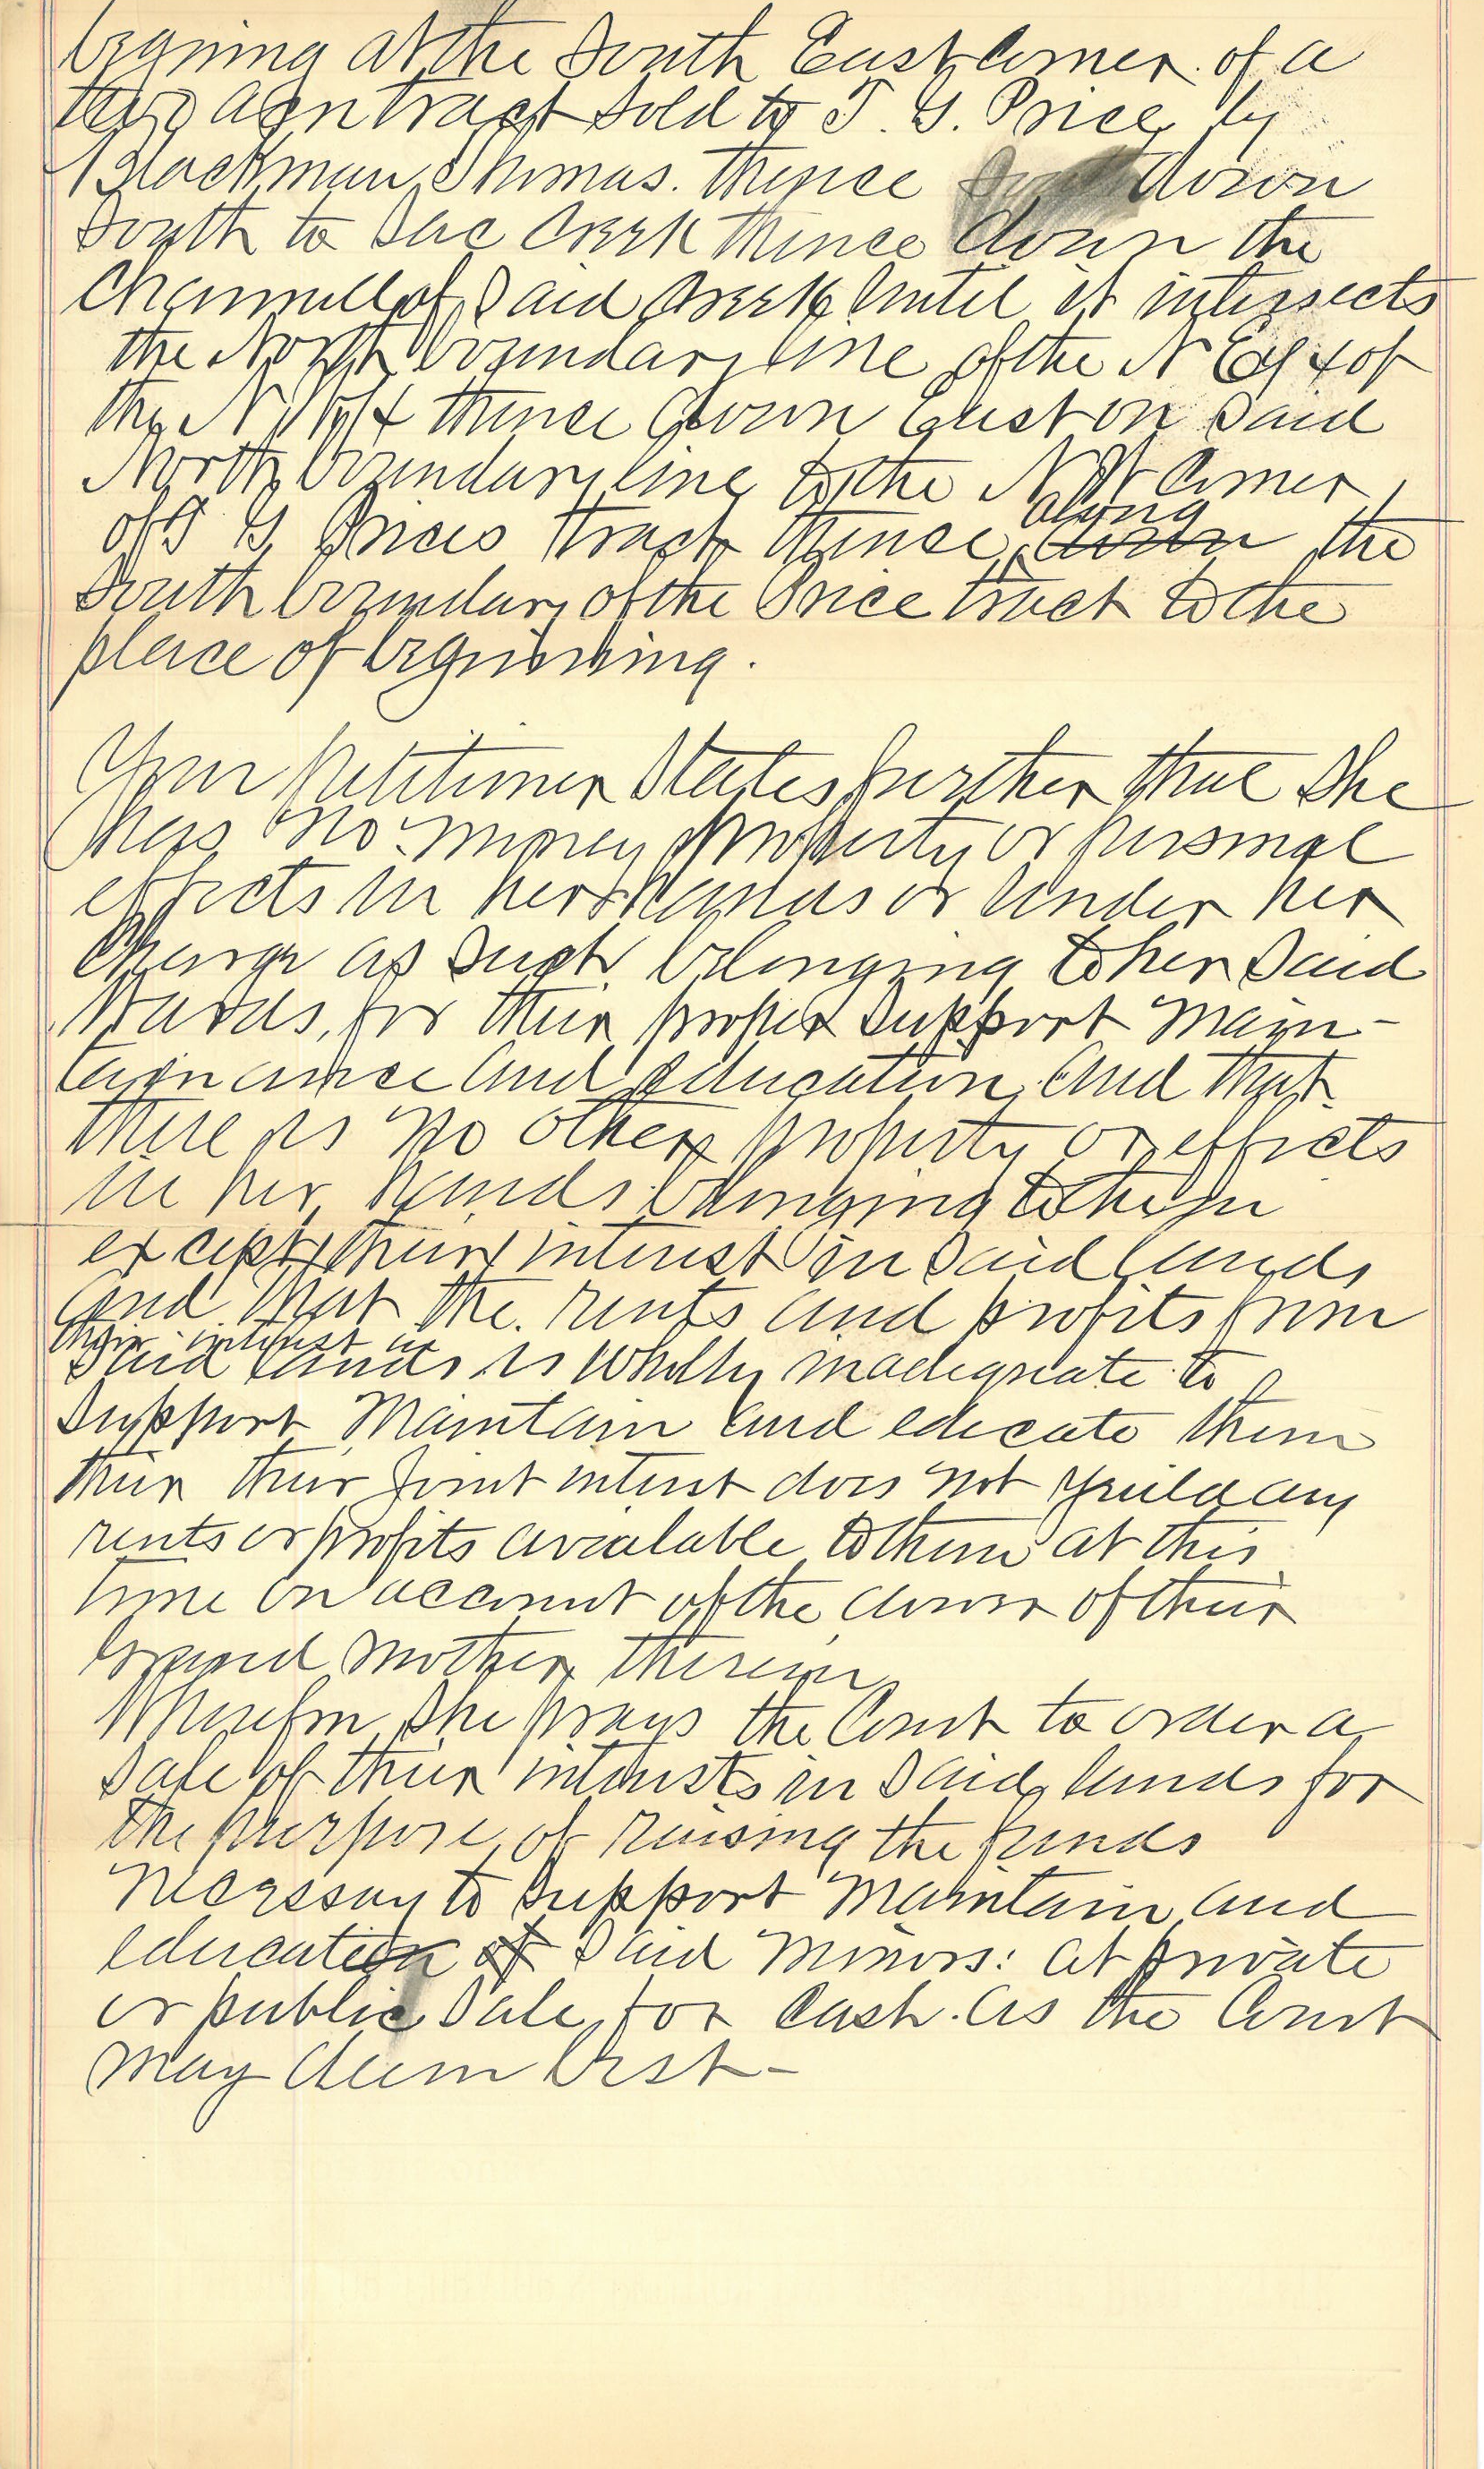 begining at the South East Corner of a
two acre tract sold to T. G. Price by
Blackman Thomas. thence down
South to Sac Creek thence down the
Channell of Said Creek Until it intersects
the North boundary line of the N E 1/4 of
the N W 1/4 thence down East on Said
North boundary line to the N W Corner
of T G Prices tract thence along down the
South boundary of the Price tract to the
place of beginning.
Your petitioner States further that She
has no money property or personal
effects in her hands or Under her
Charge as such belonging to her Said
Wards, for their proper Support Main-
tainance and education. And that
there is no other property or effects
in her hands belonging to them
except their interest in Said lands
and that the rents and profits from
their interest in
Said lands is wholly inadequate to
Support Maintain and educate them
their joint interest does not yeild any
rents or profits avialable to them at this
time on account of the dower of their
Grand Mother therein
Wherefor She prays the Court to order a
Sale of their interests in Said lands for
the purpose of raising the funds
necessary to Support Maintain and
education of Said Minors: at private
or public Sale for Cash. as the Court
may deem best-